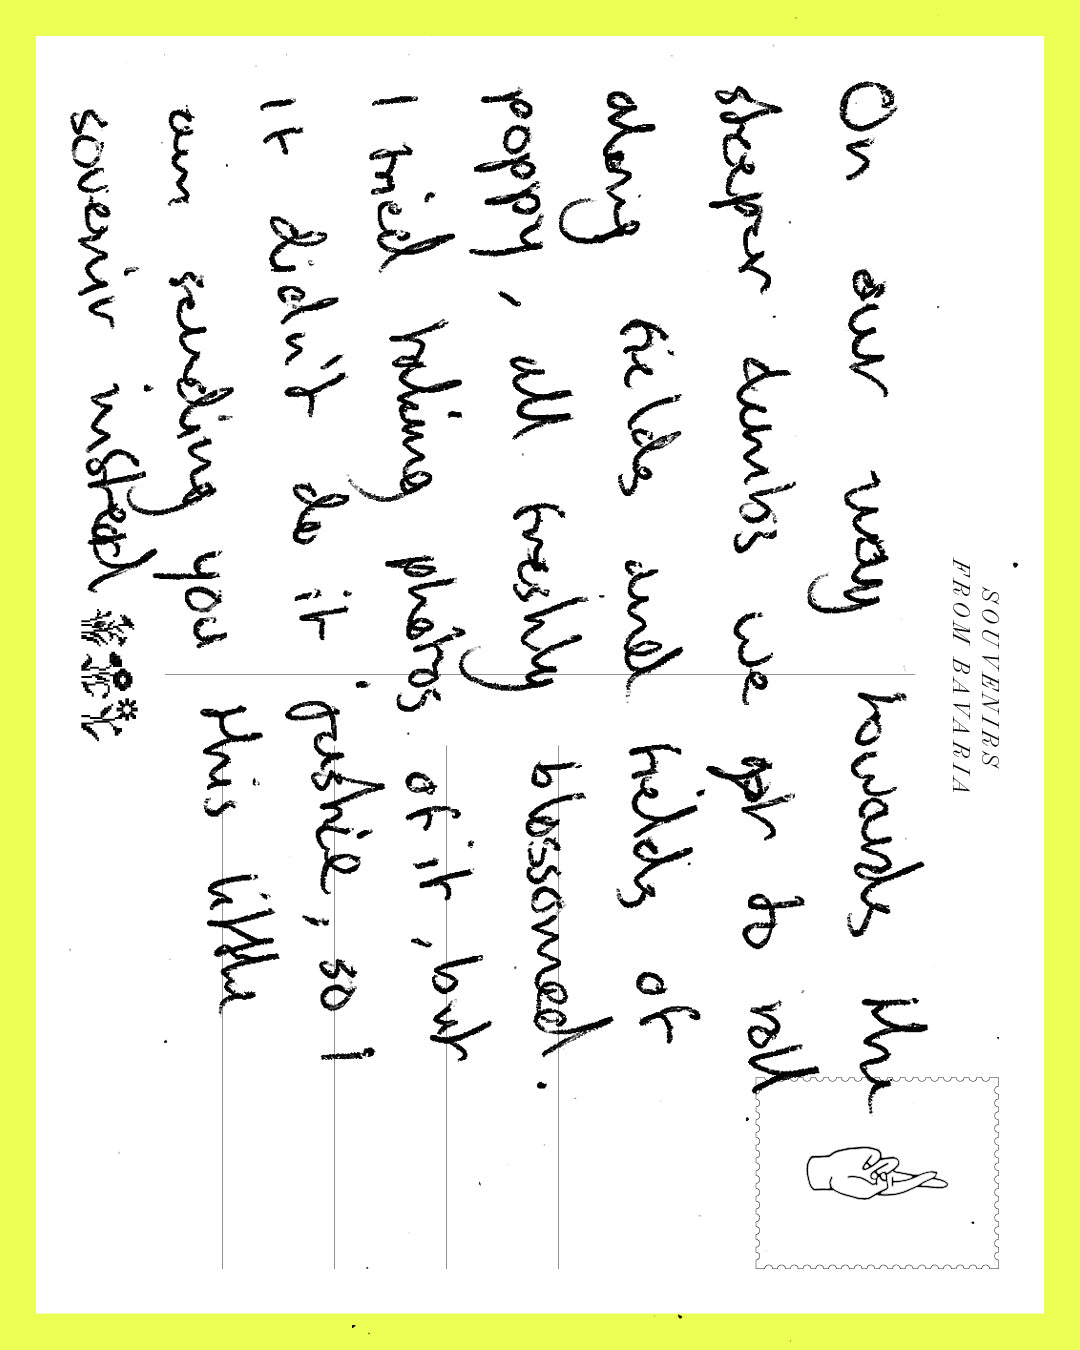 SOUVENIRS
FROM BAVARIA
On our way towards the
steeper climbs we got to roll
along fields and fields of
poppy, all freshly blossomed.
I tried taking photos of it, but
it didn't do it justice, so i
am sending you this little
sovenir instead